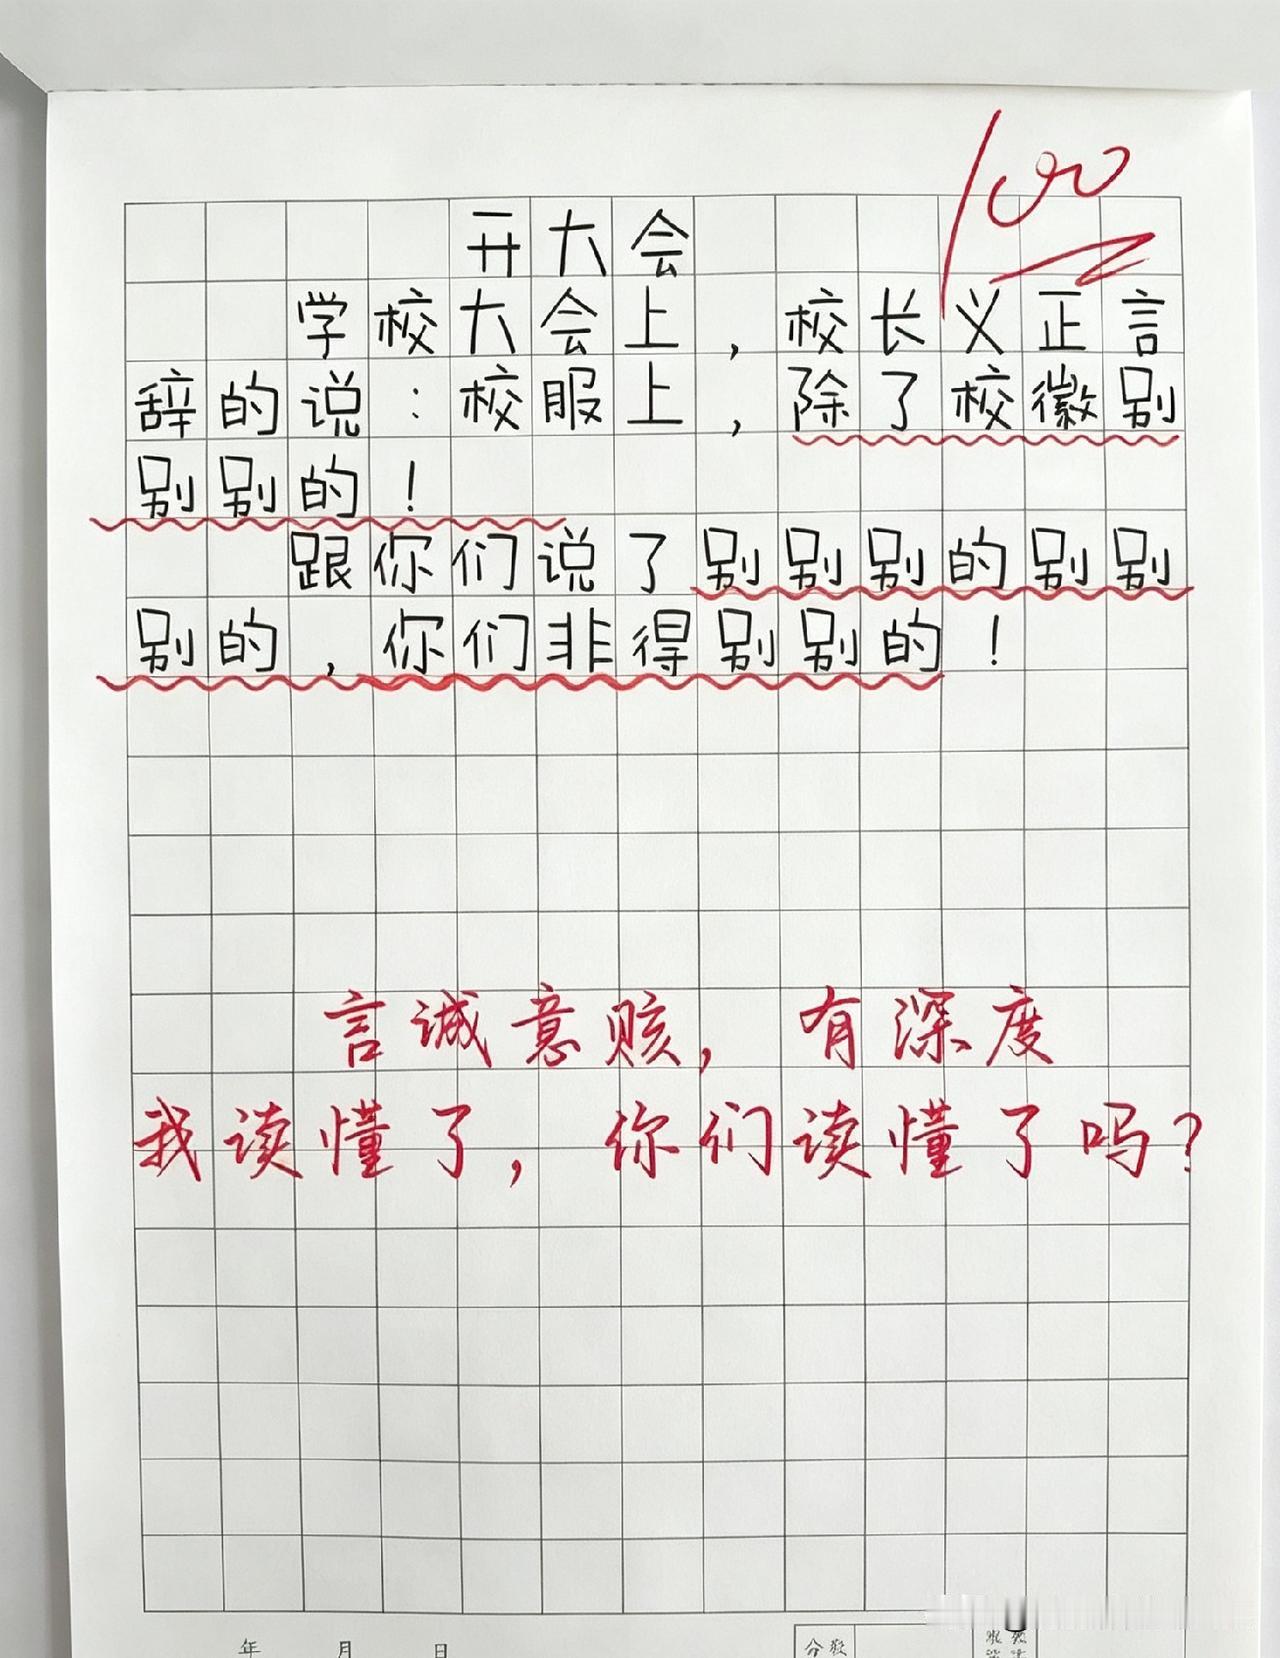 100
开大会
学校大会上，校长义正言
辞的说：校服上，除了校徽别
别别的！
跟你们说了别别别的别别
别的，你们非得别别的！
言诚意赅，有深度
我读懂了，你们读懂了吗？
年 月 日
分数